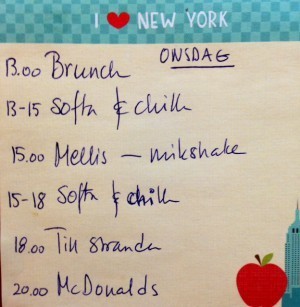 I ❤ NEW YORK
ONSDAG
13.00 Brunch
13-15 Softa & chilla
15.00 Mellis – milkshake
15-18 Softa & chilla
18.00 Till stranden
20.00 McDonalds